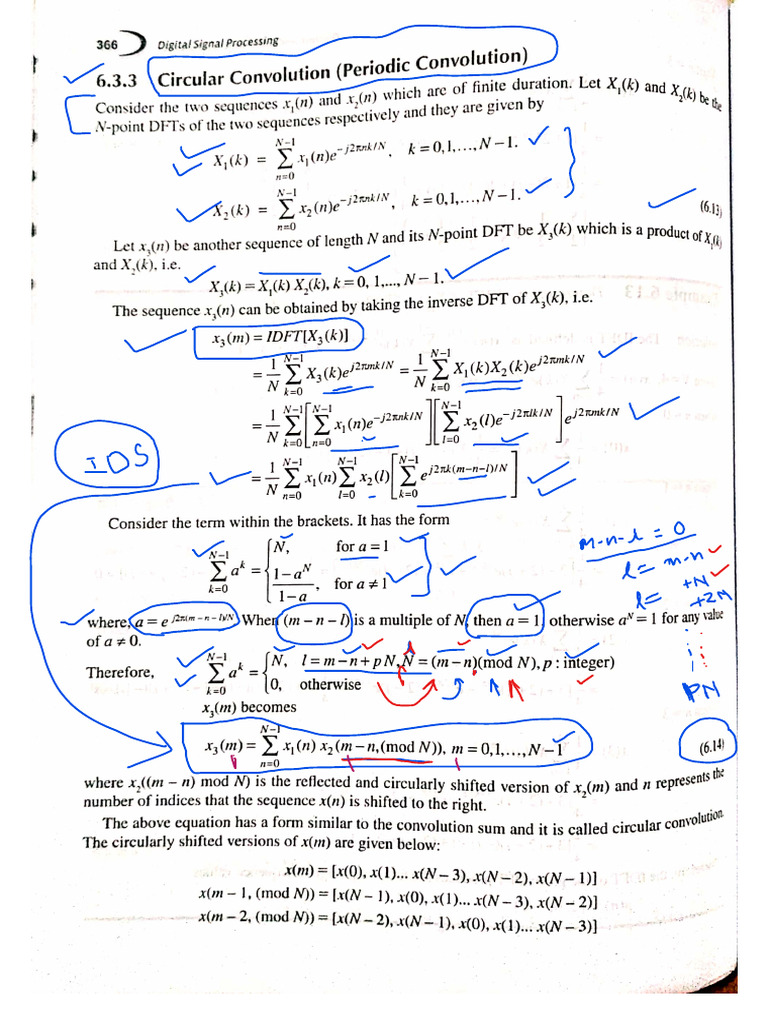 366 Digital Signal Processing
6.3.3 Circular Convolution (Periodic Convolution)
Consider the two sequences x₁(n) and x₂(n) which are of finite duration. Let X₁(k) and X₂(k) be the
N-point DFTs of the two sequences respectively and they are given by
X₁(k) = ∑_{n=0}^{N−1} x₁(n)e^{−j2πnk/N}, k = 0,1,..., N − 1.
X₂(k) = ∑_{n=0}^{N−1} x₂(n)e^{−j2πnk/N}, k = 0,1,..., N − 1. (6.13)
Let x₃(n) be another sequence of length N and its N-point DFT be X₃(k) which is a product of X₁(k)
and X₂(k), i.e.
X₃(k) = X₁(k) X₂(k), k = 0, 1,..., N − 1.
The sequence x₃(n) can be obtained by taking the inverse DFT of X₃(k), i.e.
x₃(m) = IDFT[X₃(k)]
= 1/N ∑_{k=0}^{N−1} X₃(k)e^{j2πmk/N} = 1/N ∑_{k=0}^{N−1} X₁(k)X₂(k)e^{j2πmk/N}
= 1/N ∑_{k=0}^{N−1} [∑_{n=0}^{N−1} x₁(n)e^{−j2πnk/N}] [∑_{l=0}^{N−1} x₂(l)e^{−j2πlk/N}] e^{j2πmk/N}
IDS
= 1/N ∑_{n=0}^{N−1} x₁(n) ∑_{l=0}^{N−1} x₂(l) [∑_{k=0}^{N−1} e^{j2πk(m−n−l)/N}]
Consider the term within the brackets. It has the form
m-n-l = 0
∑_{k=0}^{N−1} a^k = { N, for a = 1
l = m-n
(1 − a^N)/(1 − a), for a ≠ 1
l = +N
+2N
where, a = e^{j2π(m − n − l)/N} When (m − n − l) is a multiple of N, then a = 1, otherwise a^N = 1 for any value
of a ≠ 0.
Therefore, ∑_{k=0}^{N−1} a^k = { N, l = m − n + p N, N = (m − n)(mod N), p : integer)
l
0, otherwise
PN
x₃(m) becomes
x₃(m) = ∑_{n=0}^{N−1} x₁(n) x₂(m − n,(mod N)), m = 0,1,..., N − 1 (6.14)
where x₂((m − n) mod N) is the reflected and circularly shifted version of x₂(m) and n represents the
number of indices that the sequence x(n) is shifted to the right.
The above equation has a form similar to the convolution sum and it is called circular convolution.
The circularly shifted versions of x(m) are given below:
x(m) = [x(0), x(1)... x(N − 3), x(N − 2), x(N − 1)]
x(m − 1, (mod N)) = [x(N − 1), x(0), x(1)... x(N − 3), x(N − 2)]
x(m − 2, (mod N)) = [x(N − 2), x(N − 1), x(0), x(1)... x(N − 3)]